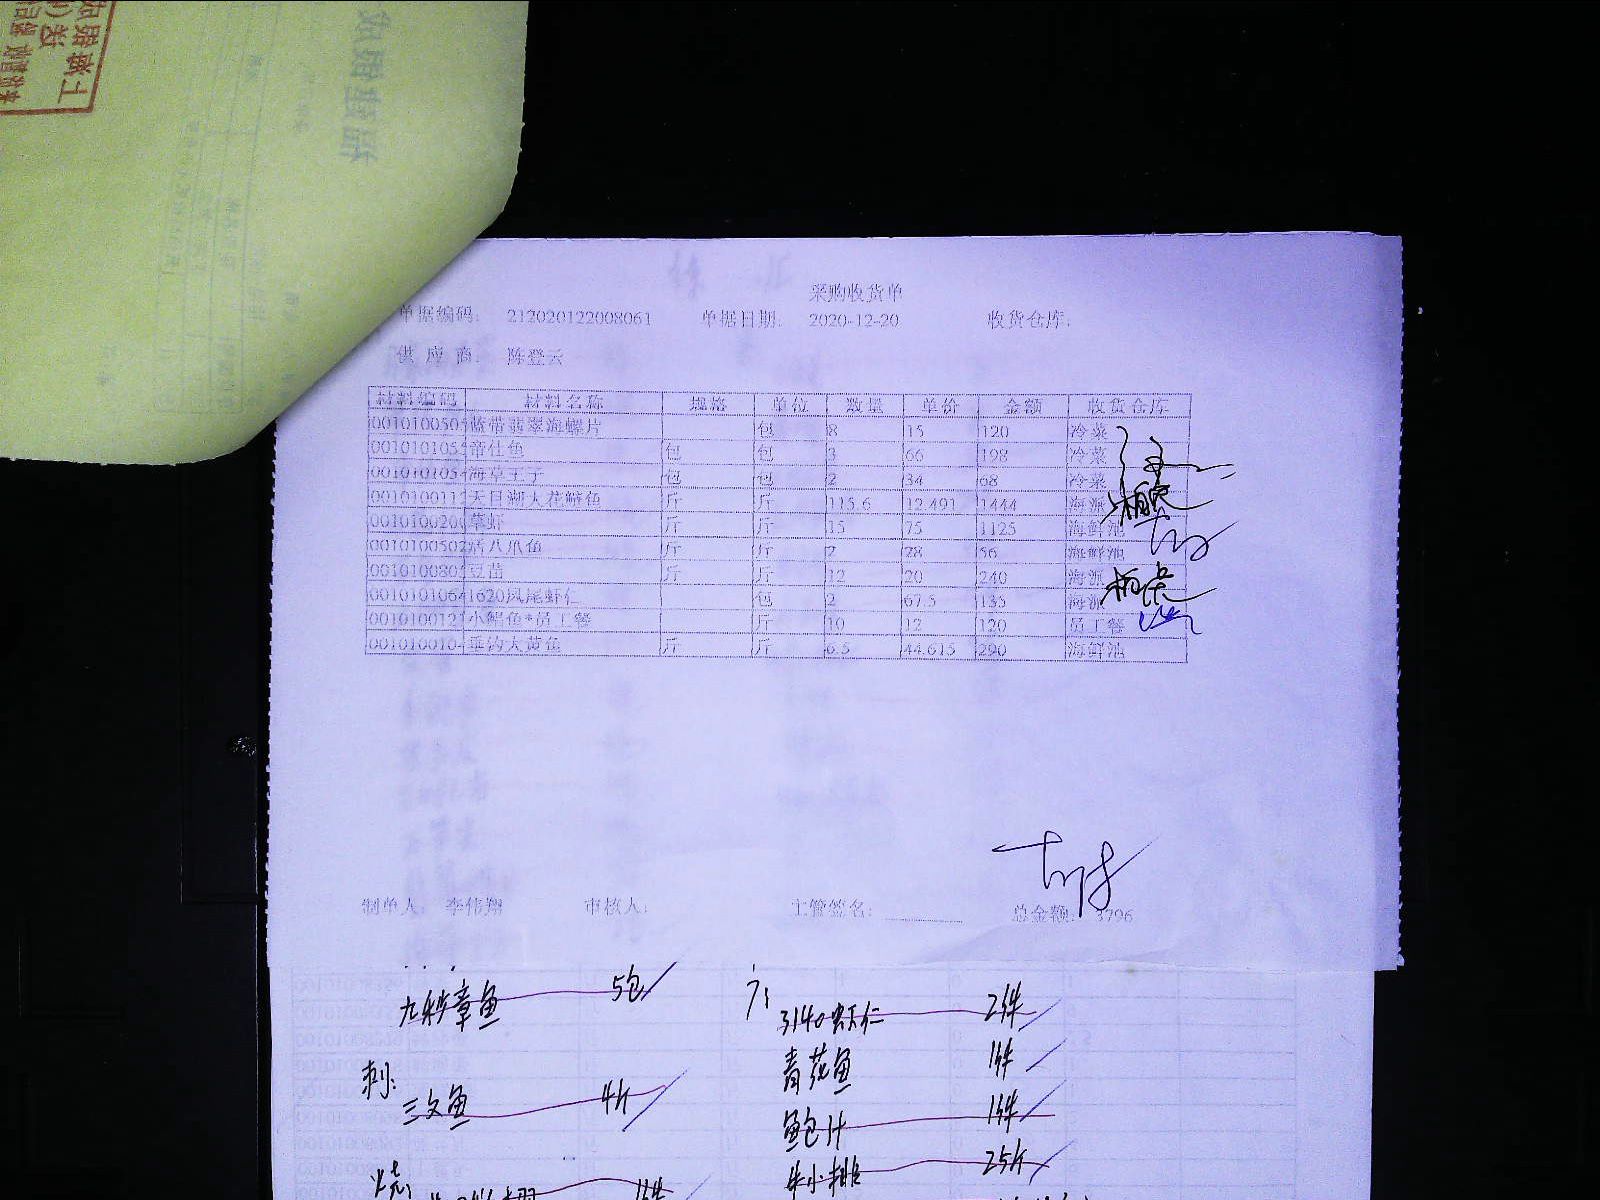 采购收货单
单据编码: 212020122008061 单据日期: 2020-12-20 收货仓库:
供应商: 陈登云
材料编码 材料名称 规格 单位 数量 单价 金额 收货仓库
001010050 蓝带翡翠海螺片 包 8 15 120 冷菜
001010105 帝仕鱼 包 包 3 66 198 冷菜
001010105 海草王子 包 包 2 34 68 冷菜
001010011 天目湖大花鲢鱼 斤 斤 115.6 12.491 1444 海派
001010020 草虾 斤 斤 15 75 1125 海鲜池
0010100502 活八爪鱼 斤 斤 2 28 56 海鲜池
001010080 豆苗 斤 斤 12 20 240 海派
001010106 1620凤尾虾仁 包 2 67.5 135 海派
001010012 小鲳鱼*员工餐 斤 10 12 120 员工餐
001010010 垂钓大黄鱼 斤 斤 6.5 44.615 290 海鲜池
制单人: 李伟翔 审核人: 主管签名: 总金额: 3796
九秒章鱼 5包
3140虾仁 2件
青花鱼 1件
刺:
三文鱼 4斤
鲍汁 1件
牛小排 25斤
烧: